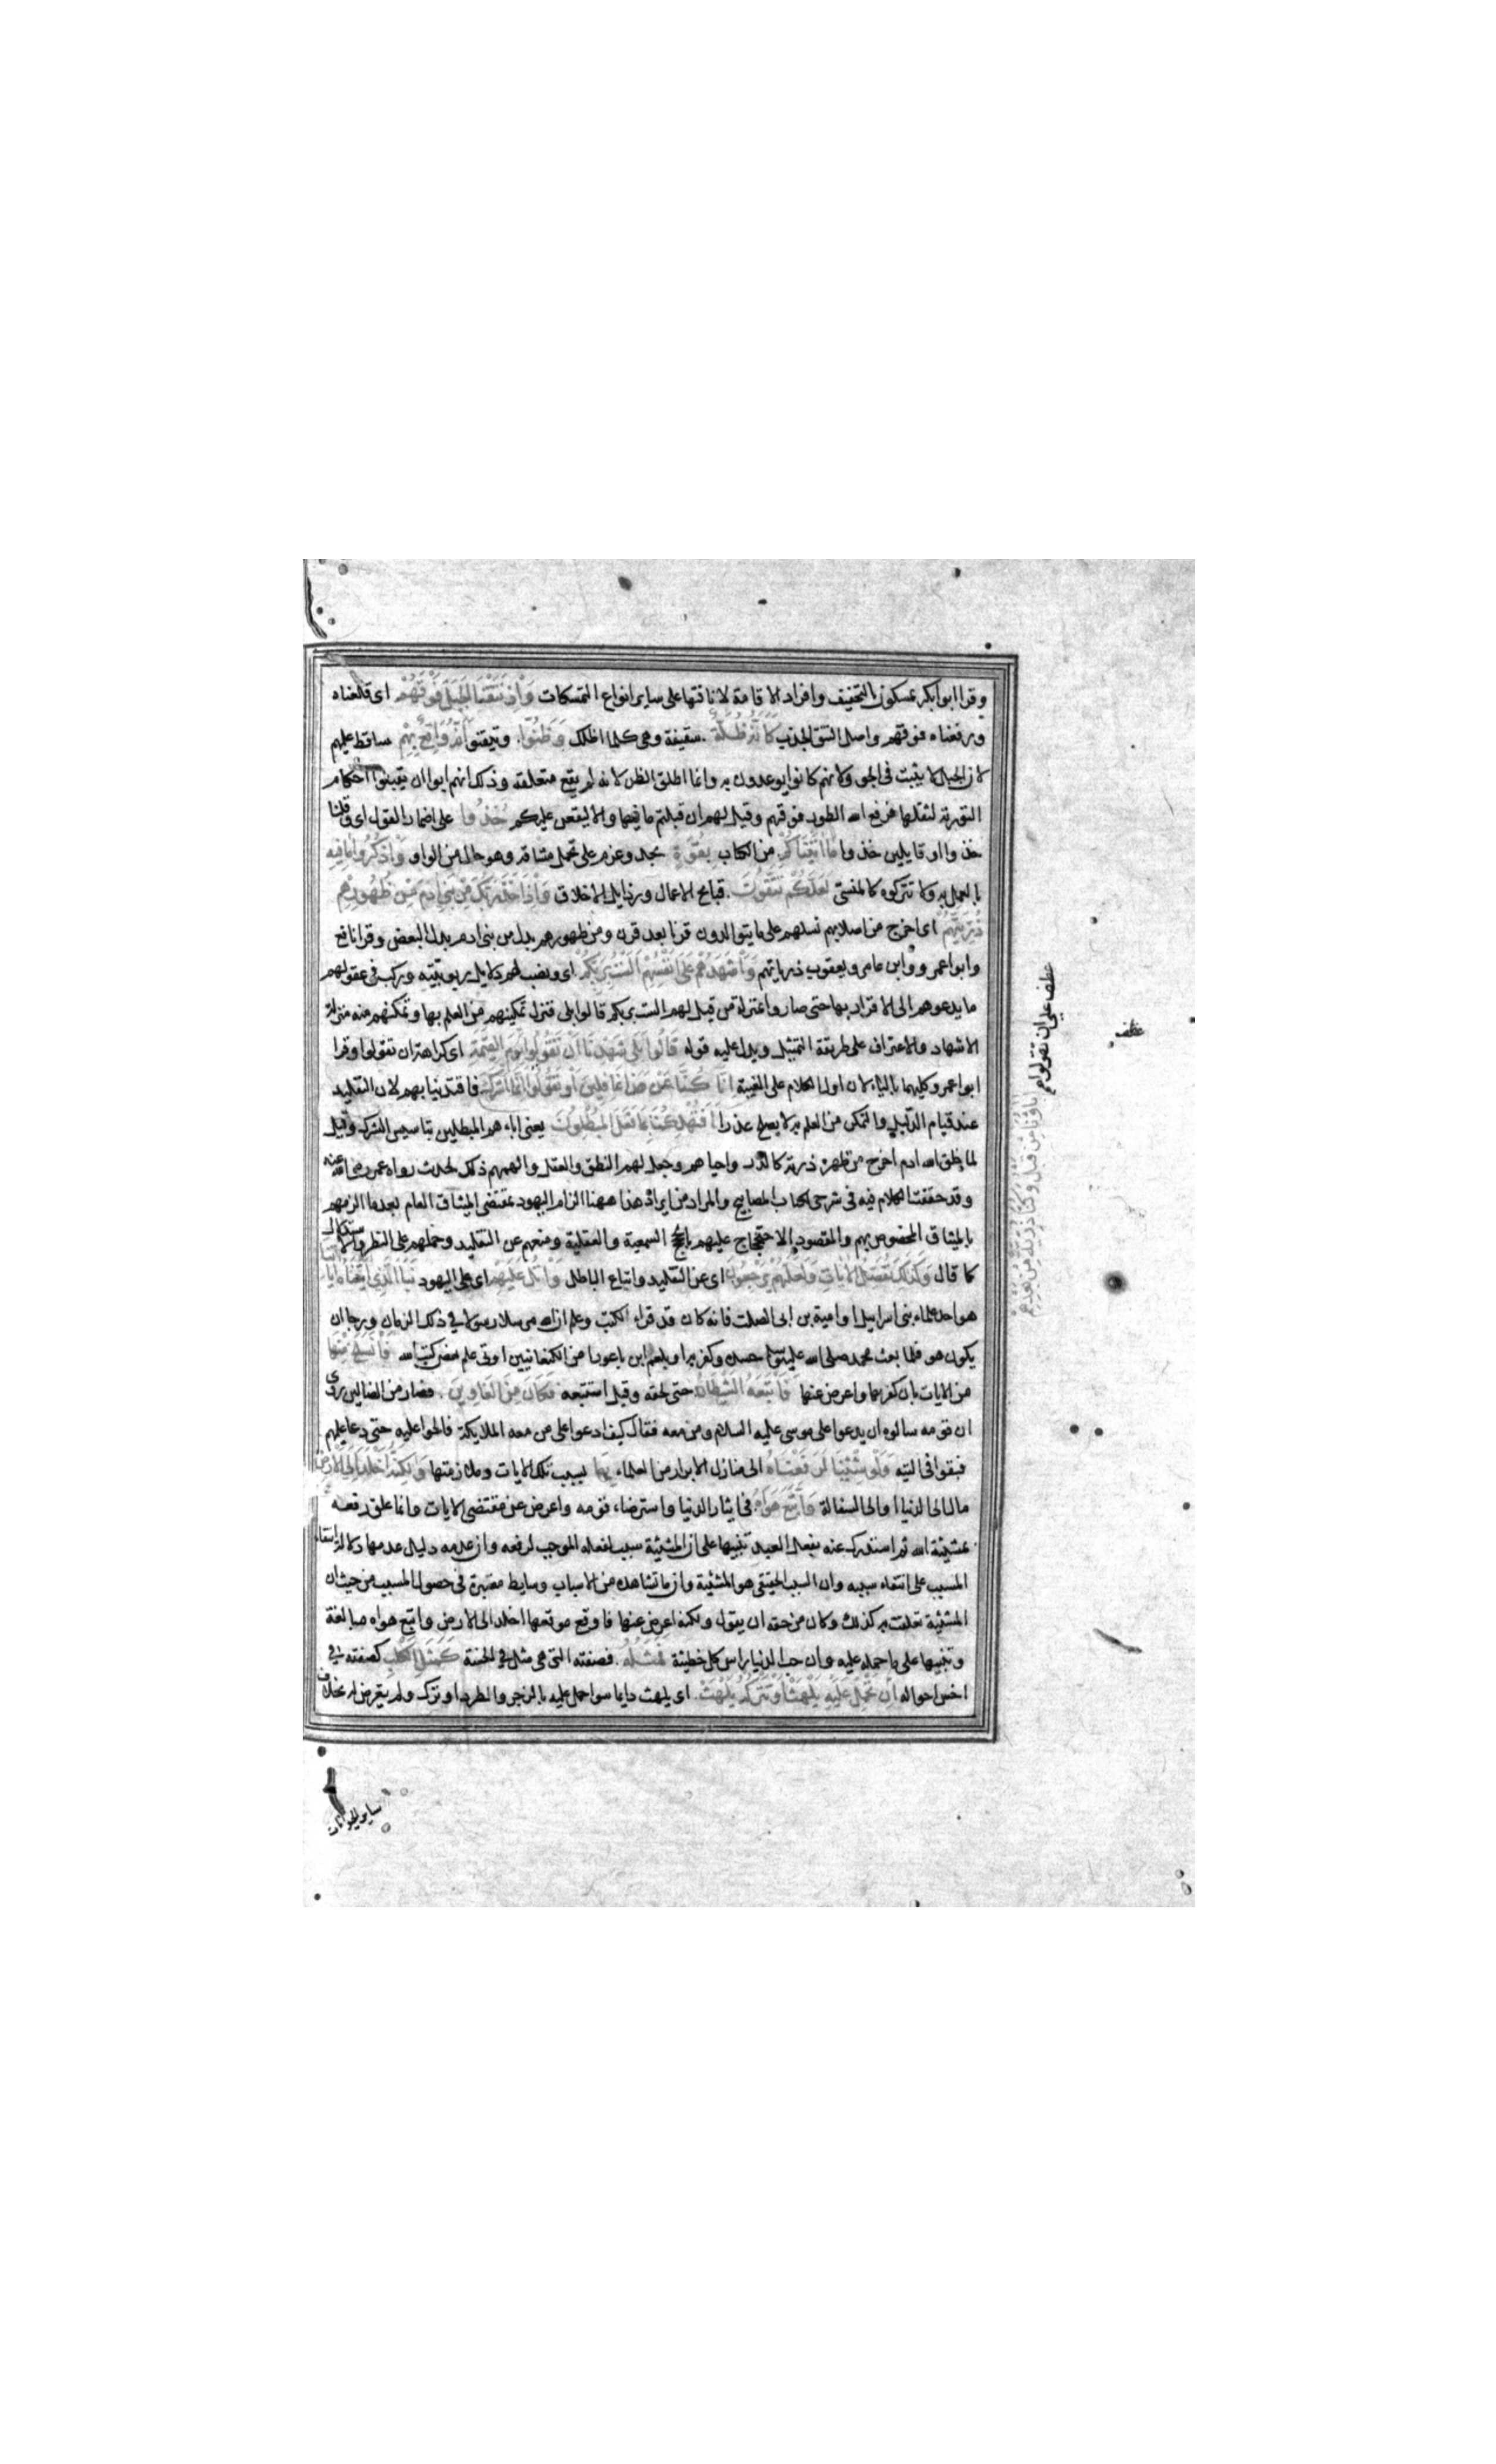 وقرا ابو بكر يمسكون بالتخفيف وافراد الاقامة لانافتها على ساير انواع التمسكات وَاِذْ نَتَقْنَا الْجَبَلَ فَوْقَهُمْ اى قلعناه
ورفعناه فوقهم واصل النتق الجذب كَاَنَّهُ ظُلَّةٌ سقيفة وهى كلما اظلك وَظَنُّوا وتيقنوا اَنَّهُ وَاقِعٌ بِهِمْ ساقط عليهم
لان الجبل لا يثبت فى الجو ولانهم كانوا يوعدون به وانما اطلق الظن لانه لم يقع متعلقه وذلك انهم ابوا ان يقبلوا احكام
التورية لثقلها فرفع الله الطور فوقهم وقيل لهم ان قبلتم ما فيها والا ليقعن عليكم خُذُوا على اضمار القول اى وقلنا
خذوا او قايلين خذوا مَا اٰتَيْنَاكُمْ من الكتاب بِقُوَّةٍ بجد وعزم على تحمل مشاقه وهو حال من الواو وَاذْكُرُوا مَا فِيهِ
بالعمل به ولا تتركوه كالمنسى لَعَلَّكُمْ تَتَّقُونَ قبايح الاعمال ورذايل الاخلاق وَاِذْ اَخَذَ رَبُّكَ مِنْ بَنِى اٰدَمَ مِنْ ظُهُورِهِمْ
ذُرِّيَّتَهُمْ اى اخرج من اصلابهم نسلهم على ما يتوالدون قرنا بعد قرن ومن ظهورهم بدل من بنى ادم بدل البعض وقرا نافع
وابو عمرو وابن عامر ويعقوب ذرياتهم وَاَشْهَدَهُمْ عَلَى اَنْفُسِهِمْ اَلَسْتُ بِرَبِّكُمْ اى ونصب لهم دلايل ربوبيته وركب فى عقولهم
ما يدعوهم الى الاقرار بها حتى صاروا بمنزلة من قيل لهم الست بربكم قالوا بلى فنزل تمكينهم من العلم بها وتمكنهم منه منزلة
الاشهاد والاعتراف على طريقة التمثيل ويدل عليه قوله قَالُوا بَلَى شَهِدْنَا اَنْ تَقُولُوا يَوْمَ الْقِيٰمَةِ اى كراهة ان تقولوا وقرا
ابو عمرو كليهما بالياء لان اول الكلام على الغيبة اِنَّا كُنَّا عَنْ هَذَا غَافِلِينَ اَوْ تَقُولُوا اِنَّمَا اَشْرَكَ فاقتدينا بهم لان التقليد
عند قيام الدليل والتمكن من العلم به لا يصلح عذرا اَفَتُهْلِكُنَا بِمَا فَعَلَ الْمُبْطِلُونَ يعنى اباءهم المبطلين بتاسيس الشرك وقيل
لما خلق الله ادم اخرج من ظهره ذرية كالذر واحياهم وجعل لهم النطق والعقل والهمهم ذلك لحديث رواه عمر رضى الله عنه
وقد حققنا الكلام فيه فى شرحى لكتاب المصابيح والمراد من ايراد هذا ههنا الزام اليهود بمقتضى الميثاق العام بعدما الزمهم
بالميثاق المخصوص بهم والمقصود الاحتجاج عليهم بالحجج السمعية والعقلية ومنعهم عن التقليد وحملهم على النظر والاستدلال
كما قال وَكَذَلِكَ نُفَصِّلُ الْاٰيَاتِ وَلَعَلَّهُمْ يَرْجِعُونَ اى عن التقليد واتباع الباطل وَاتْلُ عَلَيْهِمْ اى على اليهود نَبَأَ الَّذِى اٰتَيْنَاهُ اٰيَاتِنَا
هو احد علماء بنى اسرايل او امية بن ابى الصلت فانه كان قد قراء الكتب وعلم ان الله مرسل رسولا فى ذلك الزمان ورجا ان
يكون هو فلما بعث محمد صلى الله عليه وسلم حسده وكفر به او بلعم ابن باعورا من الكنعانيين اوتى علم بعض كتب الله فَانْسَلَخَ مِنْهَا
من الايات بان كفر بها واعرض عنها فَاَتْبَعَهُ الشَّيْطَانُ حتى لحقه وقيل استتبعه فَكَانَ مِنَ الْغَاوِينَ فصار من الضالين روى
ان قومه سالوه ان يدعوا على موسى عليه السلام ومن معه فقال كيف ادعوا على من معه الملايكة فالحوا عليه حتى دعا عليهم
فبقوا فى التيه وَلَوْ شِئْنَا لَرَفَعْنَاهُ الى منازل الابرار من العلماء بِهَا بسبب تلك الايات وملازمتها وَلَكِنَّهُ اَخْلَدَ اِلَى الْاَرْضِ
مال الى الدنيا او الى السفالة وَاتَّبَعَ هَوَاهُ فى ايثار الدنيا واسترضاء قومه واعرض عن مقتضى الايات وانما علق رفعه
بمشيئة الله ثم استدرك عنه بفعل العبد تنبيها على ان المشيئة سبب لفعله الموجب لرفعه وان عدمه دليل عدمها دلالة انتفاء
المسبب على انتفاء سببه وان السبب الحقيقى هو المشيئة وان ما نشاهده من الاسباب وسايط معتبرة فى حصول المسبب من حيث ان
المشيئة تعلقت به كذلك وكان من حقه ان يقول ولكنه اعرض عنها فاوقع موقعها اخلد الى الارض واتبع هواه مبالغة
وتنبيها على ما حمله عليه وان حب الدنيا راس كل خطيئة فَمَثَلُهُ فصفته التى هى مثل فى الخسة كَمَثَلِ الْكَلْبِ كصفته فى
اخس احواله اِنْ تَحْمِلْ عَلَيْهِ يَلْهَثْ اَوْ تَتْرُكْهُ يَلْهَثْ اى يلهث دايما سوا حمل عليه بالزجر والطرد او ترك ولم يتعرض له بخلاف
ساير الحيوانات
عطف على ان تقولوا
اٰبَاؤُنَا مِنْ قَبْلُ وَكُنَّا ذُرِّيَّةً مِنْ بَعْدِهِمْ
عطف